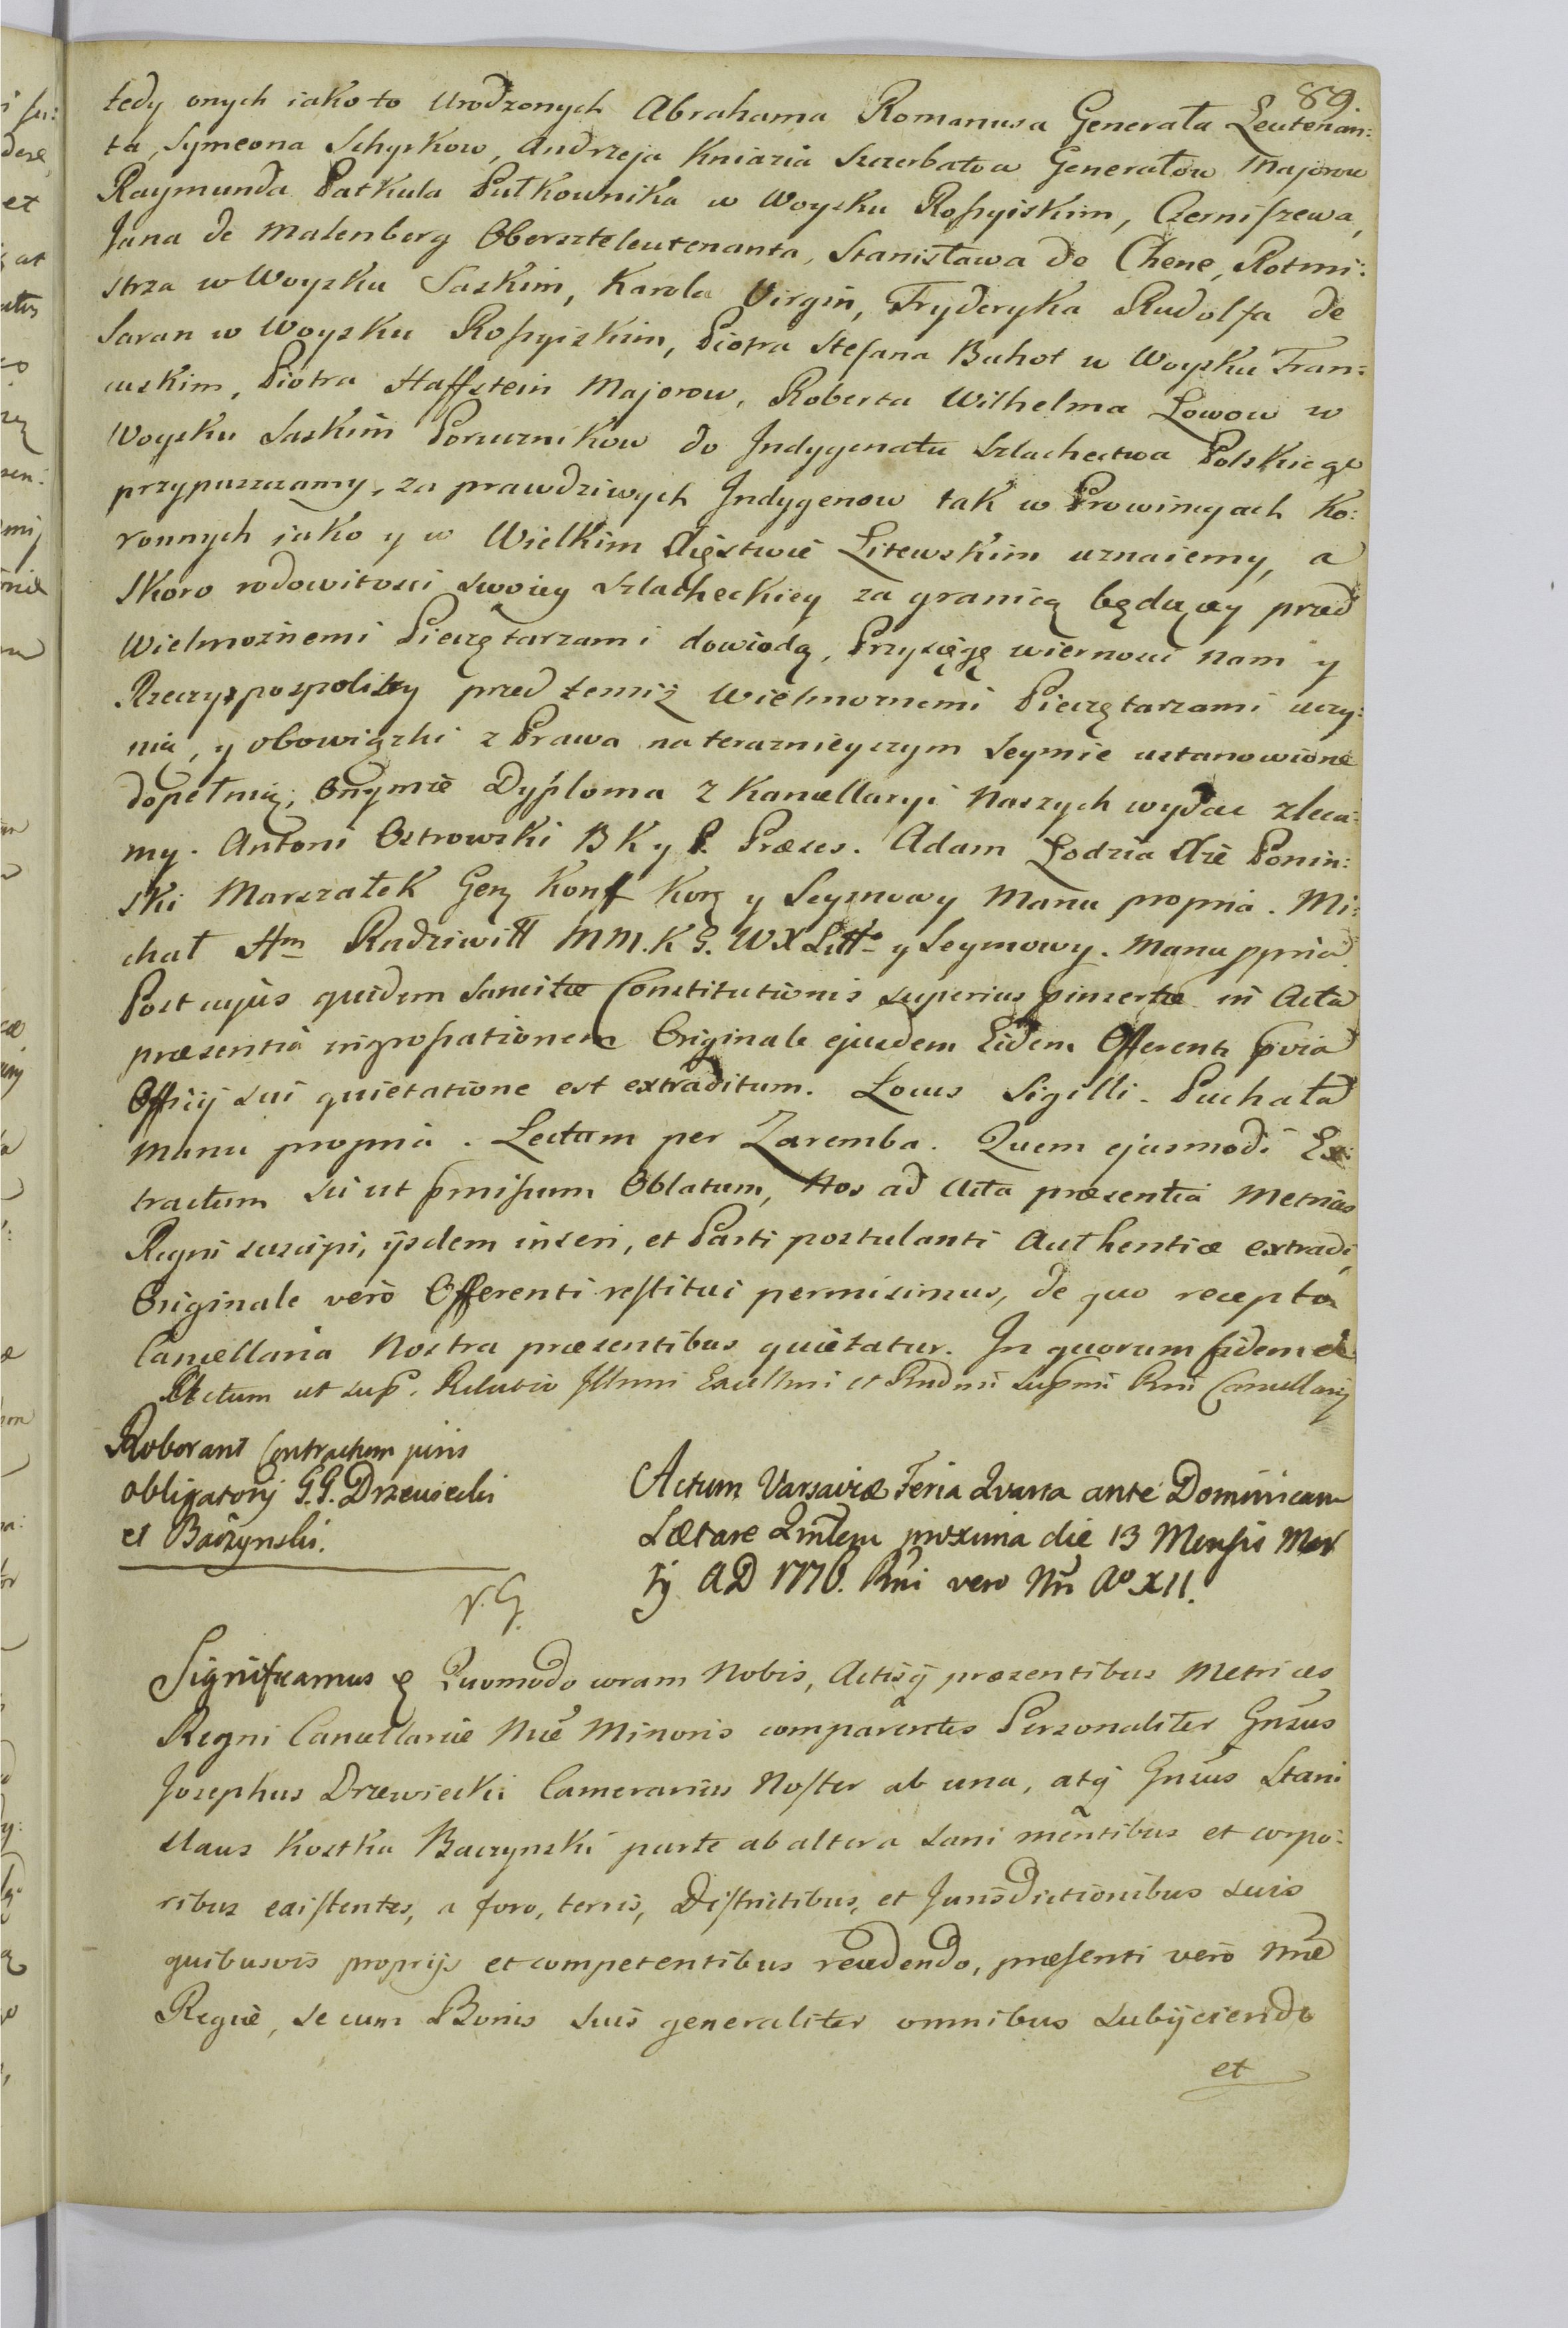 89.
tedy onych iako to Urodzonych Abrahama Romanusa Generała Leutenan:
ta, Symeona Schyrkow, Andrzeja Kniazia Szczerbatow Generałow Majorow
Raymunda Patkula Pułkownika w Woysku Rossyiskim, Czerniszewa,
Jana de Malenberg Oberszteleutenanta, Stanisława de Chene, Rotmi:
strza w Woysku Saskim, Karola Virgin, Fryderyka Rudolfa de
Saran w Woysku Rossyiskim, Piotra Stefana Buhot w Woysku Fran:
cuskim, Piotra Haffstein Majorow, Roberta Wilhelma Lowow w
Woysku Saskim Porucznikow do Indygenatu Szlachectwa Polskiego
przypuszczamy, za prawdziwych Indygenow tak w Prowincyach Ko:
ronnych iako y w Wielkim Xięstwie Litewskim uznaiemy, a
skoro rodowitosci swoiey Szlacheckiey za granicą będącey przed
Wielmożnemi Pieczętarzami dowiodą, Przysięgę wiernosci nam y
Rzeczypospolitey przed temiż Wielmożnemi Pieczętarzami uczy:
nią, y obowiązki z Prawa na teraznieyszym Seymie ustanowione
dopełnią; Onymże Dyploma z Kancellaryi Naszych wydac zleca:
my. Antoni Ostrowski B K y P. Præses. Adam Lodzia Xże Ponin:
ski Marszałek Gen Konf Kor y Seymowy Manu propria. Mi:
chał Hm Radziwiłł M M. K G. W X Litt y Seymowy. Manu ppria.
Post cujus quidem Sancitæ Constitutionis superius pinsertæ in Acta
præsentia ingrossationem Originale ejusdem Eidem Offerenti pvia
Officij sui quietatione est extraditum. Locus Sigilli. Puchała
manu propria. Lectum per Zaremba. Quem ejusmodi Ex:
tractum sic ut pmissum Oblatum, Nos ad Acta præsentia Metrices
Regni suscipi, ijsdem inseri, et Parti postulanti Authentice extradi,
Originale vero Offerenti restitui permisimus, de quo recepto
Cancellaria Nostra præsentibus quietatur. In quorum fidem &
Actum ut sup. Relatio Illmi Excellmi et Rndmi Supmi Rni Cancellarij
Roborant Contractum juris
obligatorij G.G. Drzewiecki
et Baczynski.
Actum Varsaviæ Feria Quarta ante Dominicam
Lætare Qndem proxima die 13 Mensis Mar
tij AD 1776. Rni vero Nri Aº XII.
Significamus & Quomodo coram Nobis, Actisq præsentibus Metrices
Regni Cancellariæ Nræ Minoris comparentes Personaliter Gnsus
Josephus Drzewiecki Camerarius Noster ab una, atq Gnsus Stani
slaus Kostka Baczynski parte ab altera sani mentibus et corpo:
ribus existentes, a foro, terris, Districtibus, et Jurisdictionibus suis
quibusvis proprijs et competentibus recedendo, præsenti vero Nræ
Regiæ, se cum Bonis suis generaliter omnibus subijciendo
et